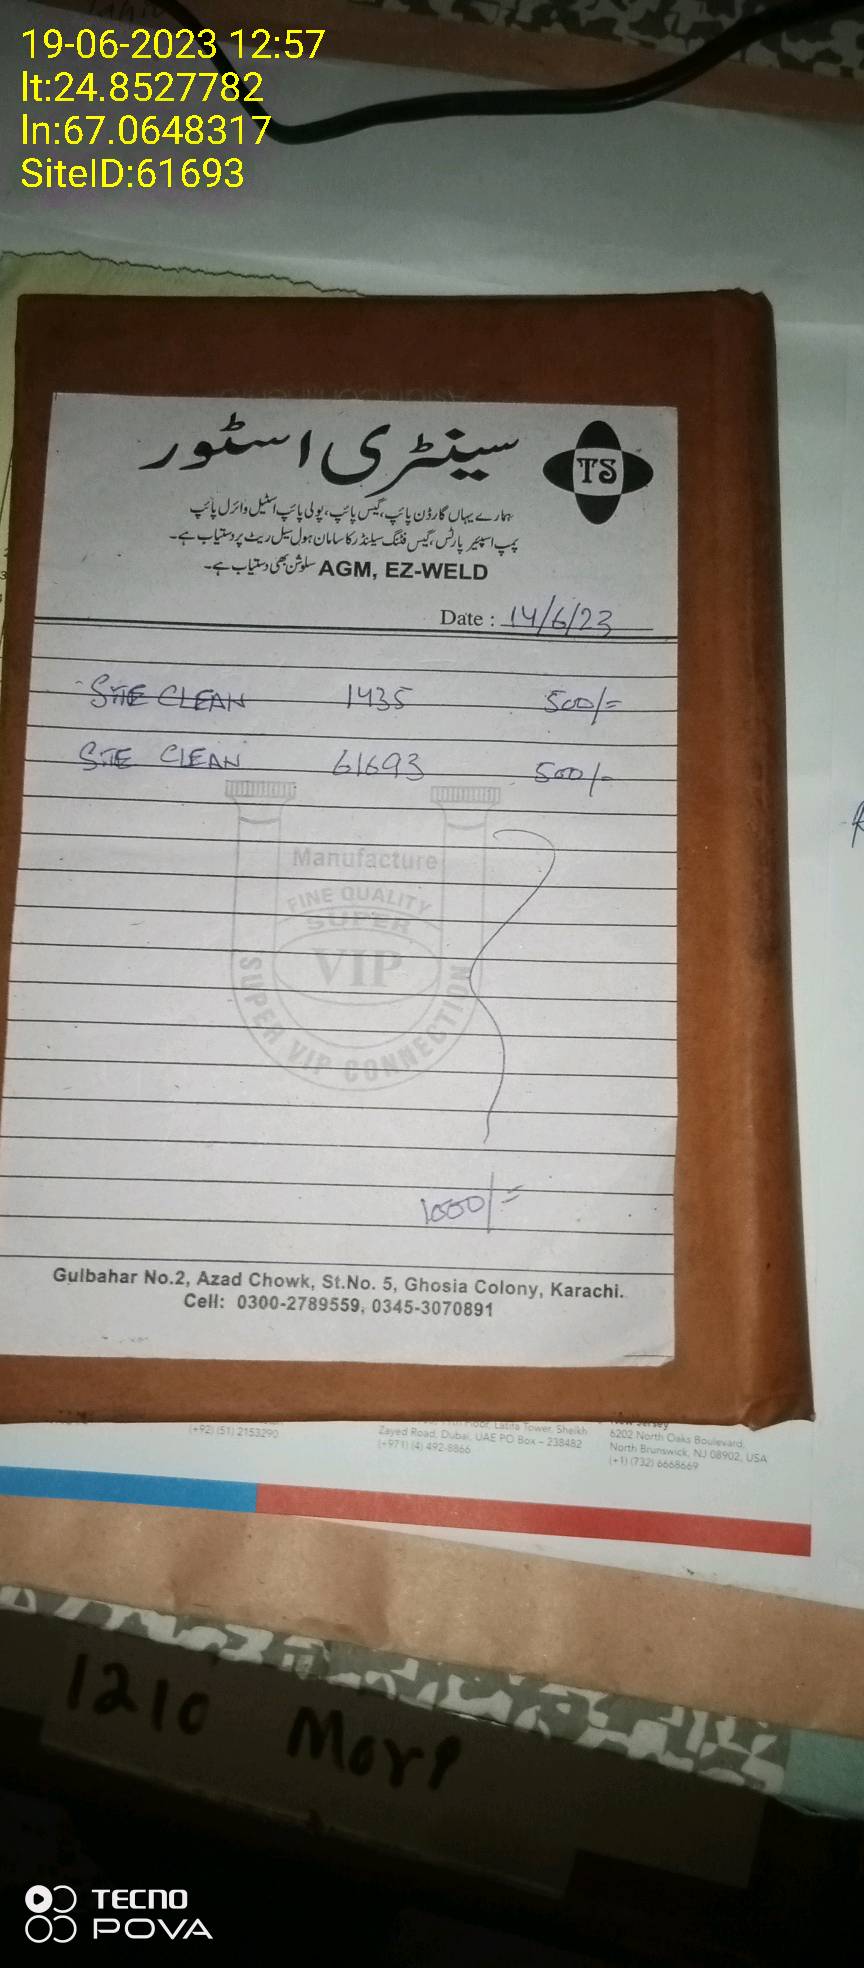 19-06-2023 12:57
lt:24.8527782
ln:67.0648317
SiteID:61693
سینٹری اسٹور
TS
ہمارے یہاں گارڈن پائپ، گیس پائپ، پولی پائپ اسٹیل وائرل پائپ
پمپ اسپیئر پارٹس، گیس فٹنگ سیلنڈر کا سامان ہول سیل ریٹ پر دستیاب ہے۔
AGM, EZ-WELD سلوشن بھی دستیاب ہے۔
Date : 14/6/23
SITE CLEAN 1435 500/=
SITE CLEAN 61693 500/-
Manufacture
FINE QUALITY
SUPER
VIP
SUPER VIP CONNECTION
1000/=
Gulbahar No.2, Azad Chowk, St.No. 5, Ghosia Colony, Karachi.
Cell: 0300-2789559, 0345-3070891
(+92) (51) 2153290
Floor, Latifa Tower, Sheikh
Zayed Road, Dubai, UAE PO Box – 238482
(+971) (4) 492-8866
New Jersey
6202 North Oaks Boulevard,
North Brunswick, NJ 08902, USA
(+1) (732) 6668669
1210 Mor
TECNO
POVA